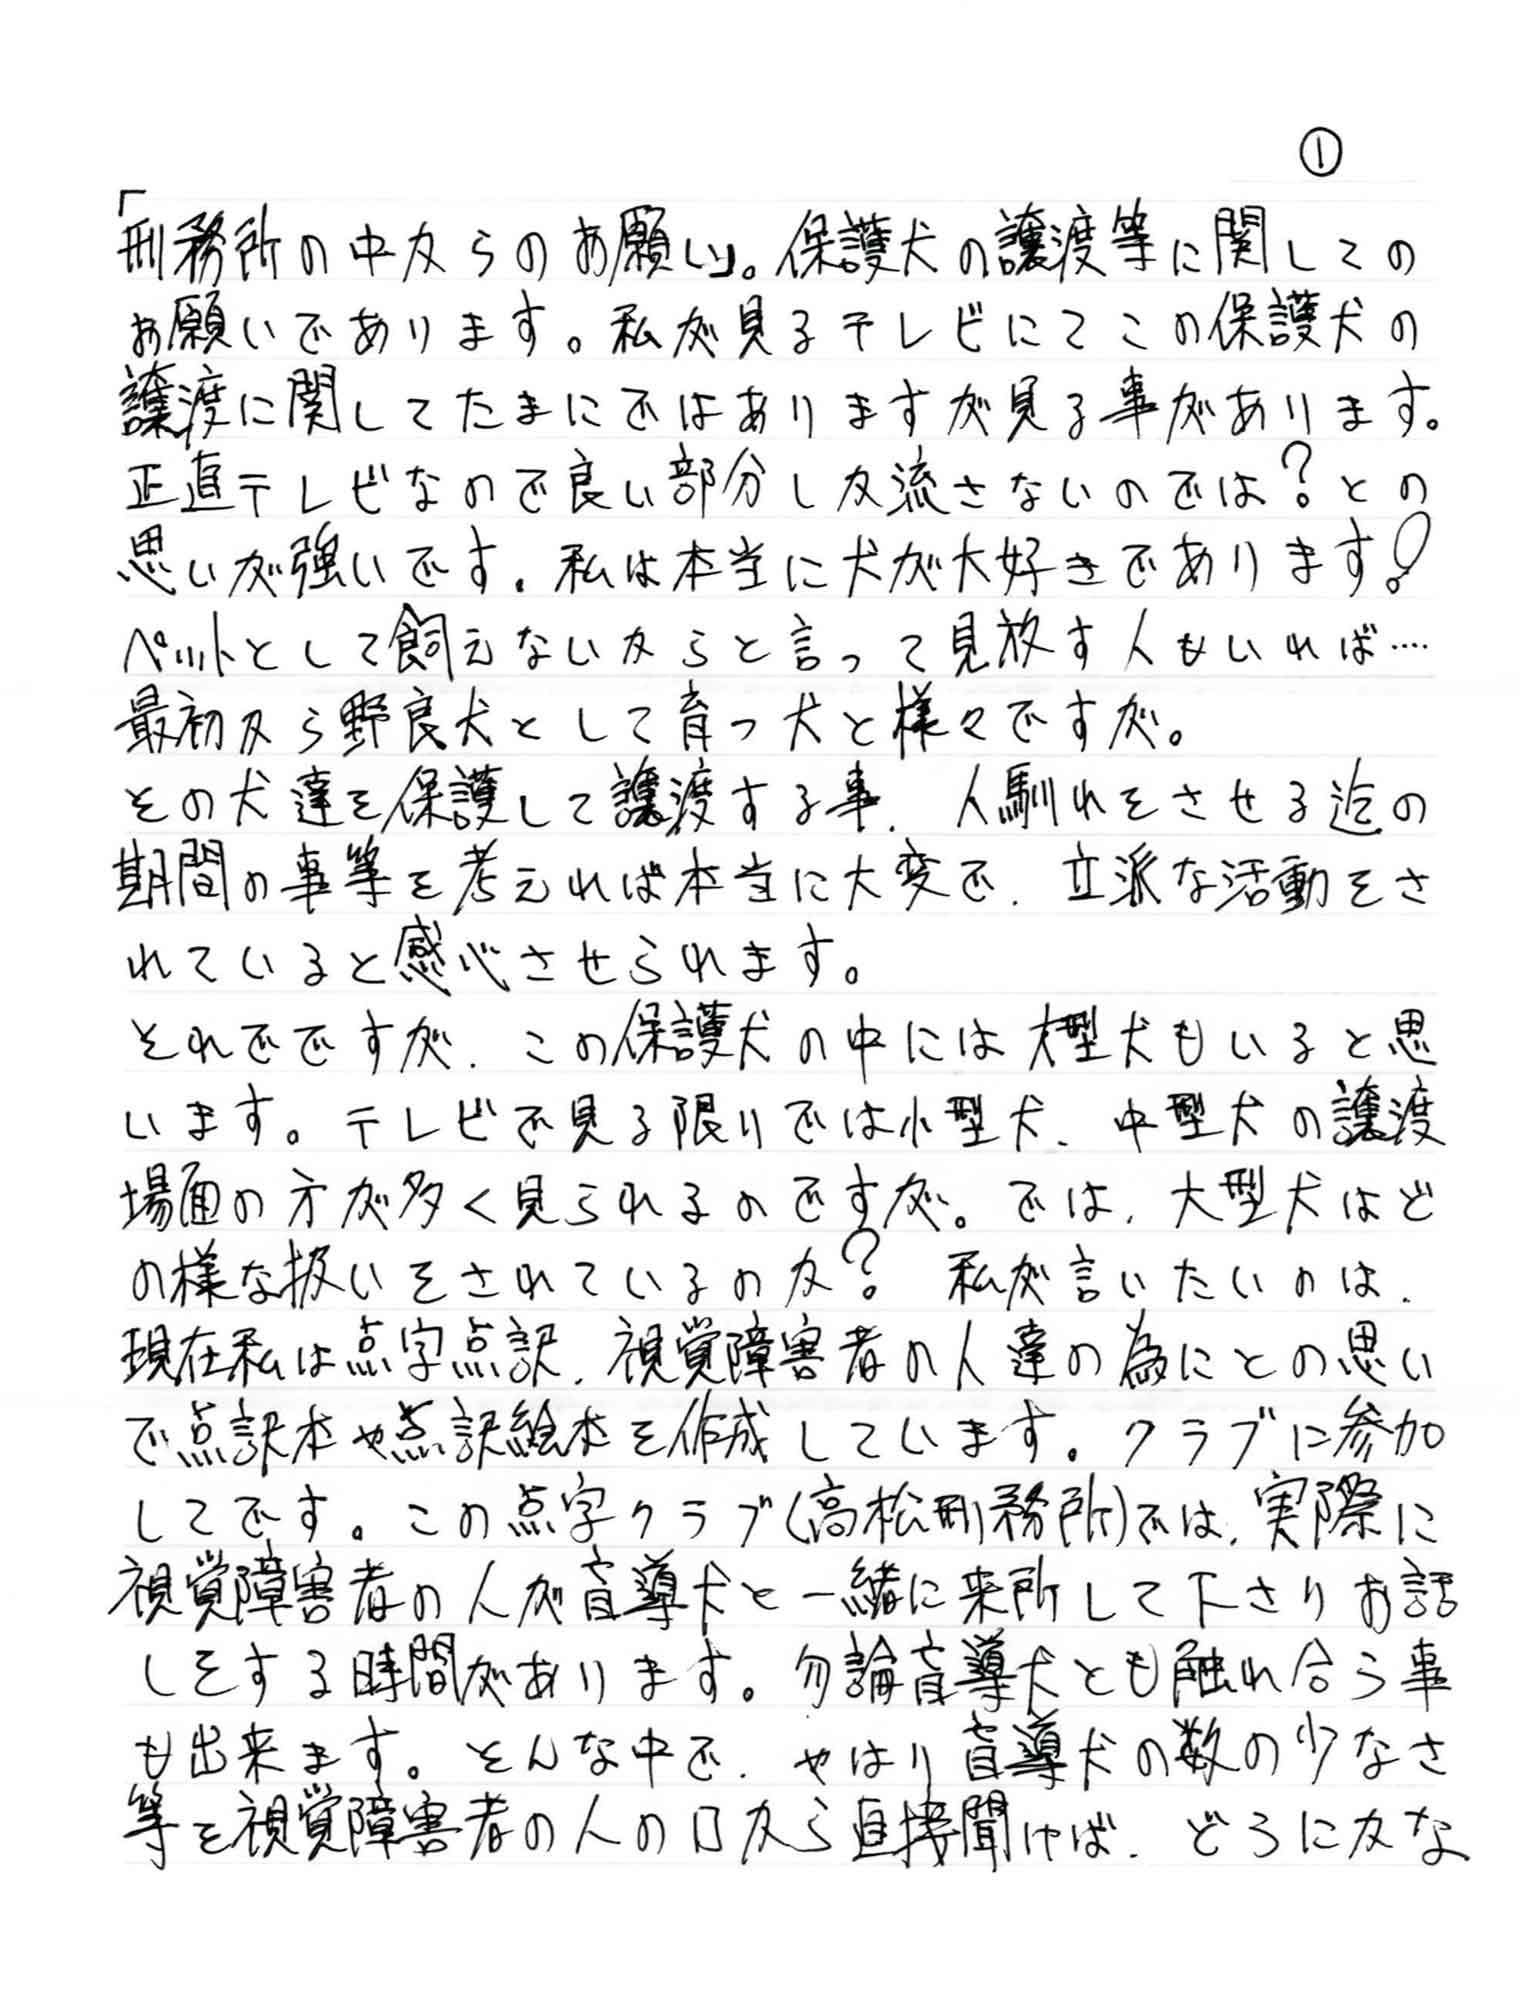 ①
「刑務所の中からのお願い」。保護犬の譲渡等に関しての
お願いであります。私が見るテレビにてこの保護犬の
譲渡に関してたまにではありますが見る事があります。
正直テレビなので良い部分しか流さないのでは?との
思いが強いです。私は本当に犬が大好きであります!
ペットとして飼えないからと言って見放す人もいれば‥‥
最初から野良犬として育つ犬と様々ですが。
その犬達を保護して譲渡する事、人馴れをさせる迄の
期間の事等を考えれば本当に大変で、立派な活動をさ
れていると感心させられます。
それでですが、この保護犬の中には大型犬もいると思
います。テレビで見る限りでは小型犬、中型犬の譲渡
場面の方が多く見られるのですが。では、大型犬はど
の様な扱いをされているのか?私が言いたいのは、
現在私は点字点訳、視覚障害者の人達の為にとの思い
で点訳本や点訳絵本を作成しています。クラブに参加
してです。この点字クラブ(高松刑務所)では、実際に
視覚障害者の人が盲導犬と一緒に来所して下さりお話
しをする時間があります。勿論盲導犬とも触れ合う事
も出来ます。そんな中で、やはり盲導犬の数の少なさ
等を視覚障害者の人の口から直接聞けば、どうにかな